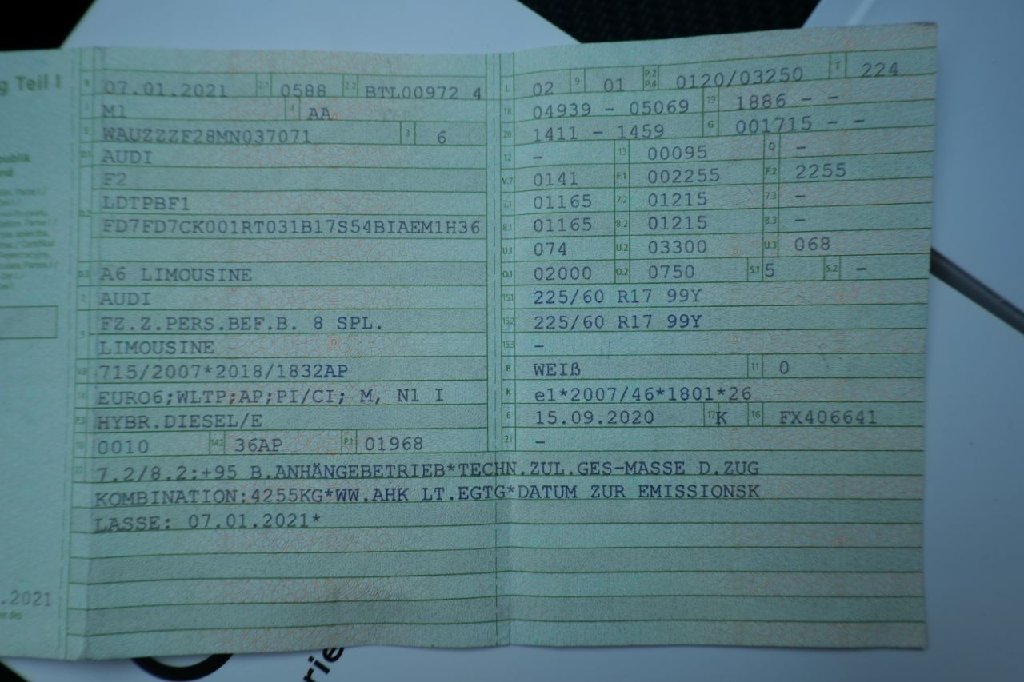 g Teil I
B 07.01.2021 2.1 0588 2.2 BTL00972 4
J M1 4 AA
E WAUZZZF28MN037071 3 6
D.1 AUDI
F2
D.2 LDTPBF1
FD7FD7CK001RT031B17S54BIAEM1H36
D.3 A6 LIMOUSINE
2 AUDI
5 FZ.Z.PERS.BEF.B. 8 SPL.
LIMOUSINE
V.9 715/2007*2018/1832AP
14 EURO6;WLTP;AP;PI/CI; M, N1 I
P.3 HYBR.DIESEL/E
10 0010 14.1 36AP P.1 01968
L 02 9 01 P.2 P.4 0120/03250 T 224
18 04939 - 05069 19 1886 - -
20 1411 - 1459 G 001715 - -
12 - 13 00095 Q -
V.7 0141 F.1 002255 F.2 2255
7.1 01165 7.2 01215 7.3 -
8.1 01165 8.2 01215 8.3 -
U.1 074 U.2 03300 U.3 068
O.1 02000 O.2 0750 S.1 5 S.2 -
15.1 225/60 R17 99Y
15.2 225/60 R17 99Y
15.3 -
R WEIß 11 0
K e1*2007/46*1801*26
6 15.09.2020 17 K 16 FX406641
21 -
22 7.2/8.2:+95 B.ANHÄNGEBETRIEB*TECHN.ZUL.GES-MASSE D.ZUG
KOMBINATION:4255KG*WW.AHK LT.EGTG*DATUM ZUR EMISSIONSK
LASSE: 07.01.2021*
.2021
rie